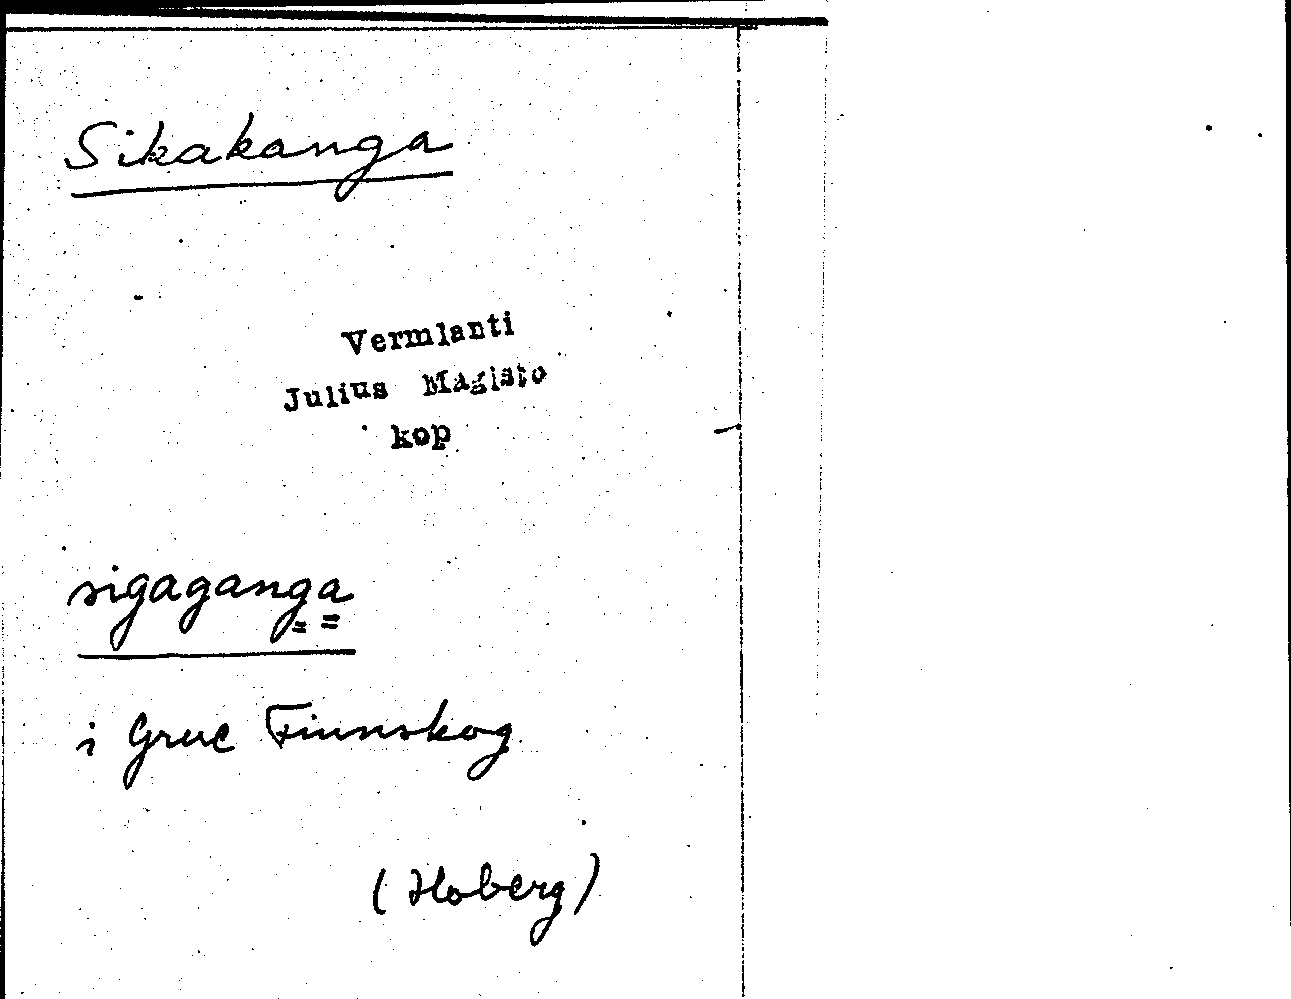 Sikakanga
Vermlanti
Julius Mägisto
kop
sigaganga
i Grue Finnskog
(Hoberg)